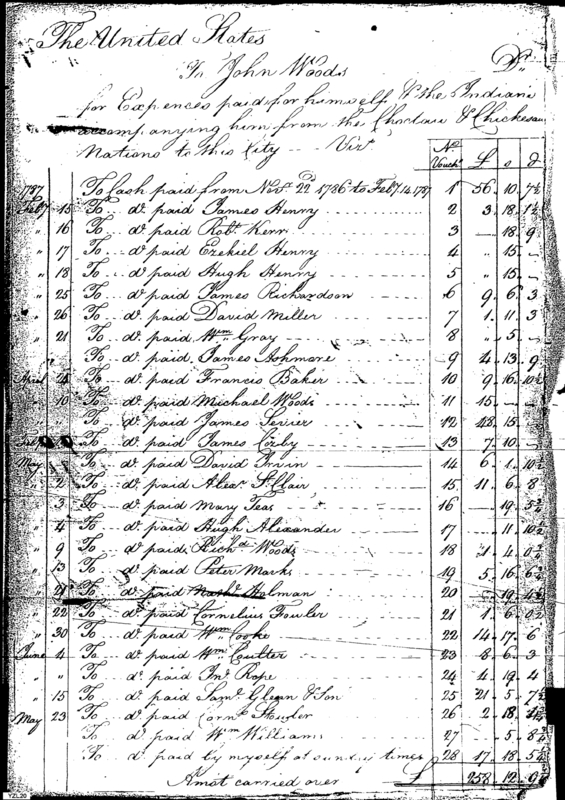 The United States
To John Woods Dr.
for Expences paid for himself & the Indians
accompanying him from the Choctaw & Chickesaw
Nations to this City -- Vizt. No. Vouchr £ s d
1787 To Cash paid from Novr. 22d 1786 to Feby 14. 1787 1 56 10 7½
Feby 15 To do paid James Henry 2 3 18 1½
" 16 To do paid Robt. Kerr 3 — 18 9
" 17 To do paid Ezekiel Henry 4 " 15 —
" 18 To do paid Hugh Henry 5 " 15 —
" 25 To do paid James Richardson 6 9 6 3
" 26 To do paid David Miller 7 1 11 3
" 21 To do paid Wm Gray 8 " 5 —
To do paid James Ashmore 9 4 13 9
April To do paid Francis Baker 10 9 16 10½
" 10 To do paid Michael Woods 11 15 — —
" " To do paid James Sevier 12 48 15
To do paid James Cozby 13 7 10
May To do paid David Irvin 14 6 1 10½
" 2 To do paid Alexr. St. Clair 15 11 6 8
" 3 To do paid Mary Teas 16 — 19
" 4 To do paid Hugh Alexander 17 " 11 10½
" 9 To do paid Richd Woods 18 1 4 0½
" 13 To do paid Peter Marks 19 5 16
" 21 To do paid Holman 20 19 4½
22 To do paid Cornelius Fowler 21 1 6 0½
" 30 To do paid Wm Cooke 22 14 17 6
June 4 To do paid Wm Coulter 23 8 6 3
" " To do paid Jno. Rope 24 4 19 4
" 15 To do paid Saml. Clean & Son 25 21 5 7½
May 23 To do paid Corns. Fowler 26 2 18
To do paid Wm Williams 27 " 5
To do paid by myself at sundry times 28 17 18
Amot carried over £ 258 12 9